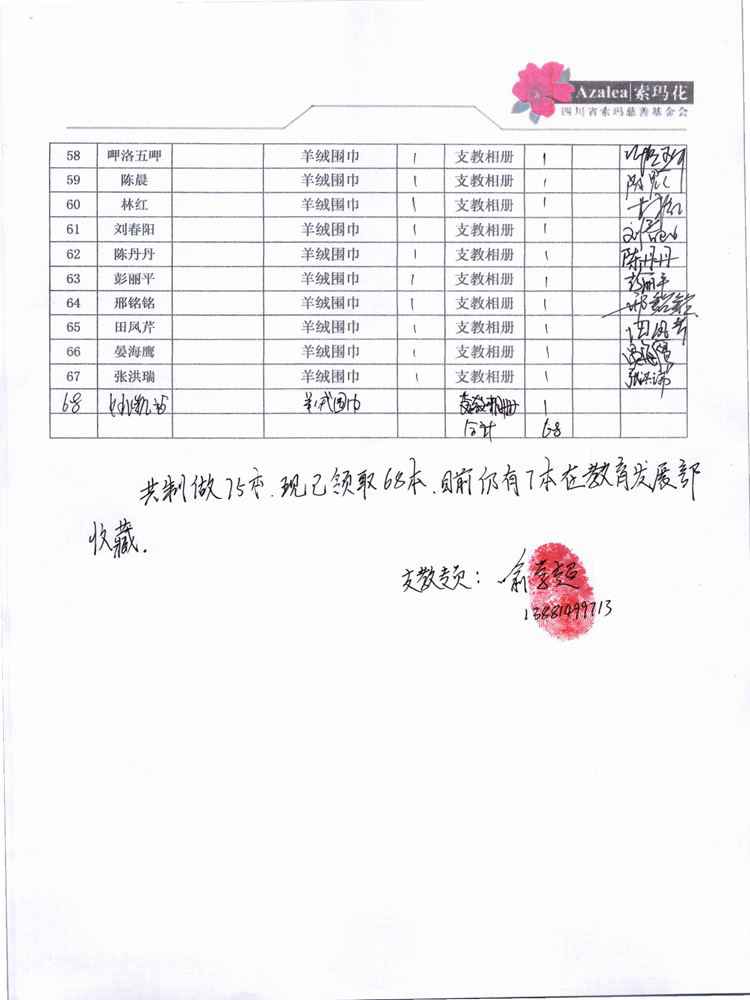 Azalea|索玛花
四川省索玛慈善基金会
58 呷洛五呷 羊绒围巾 1 支教相册 1
59 陈晨 羊绒围巾 1 支教相册 1
60 林红 羊绒围巾 1 支教相册 1 林红
61 刘春阳 羊绒围巾 1 支教相册 1
62 陈丹丹 羊绒围巾 1 支教相册 1 陈丹丹
63 彭丽平 羊绒围巾 1 支教相册 1 彭丽平
64 邢铭铭 羊绒围巾 1 支教相册 1
65 田凤芹 羊绒围巾 1 支教相册 1 田凤芹
66 晏海鹰 羊绒围巾 1 支教相册 1
67 张洪瑞 羊绒围巾 1 支教相册 1
68 羊绒围巾 支教相册 1
合计 68
共制做75本,现已领取68本,目前仍有7本在教育发展部
收藏.
支教专员:
13881499713